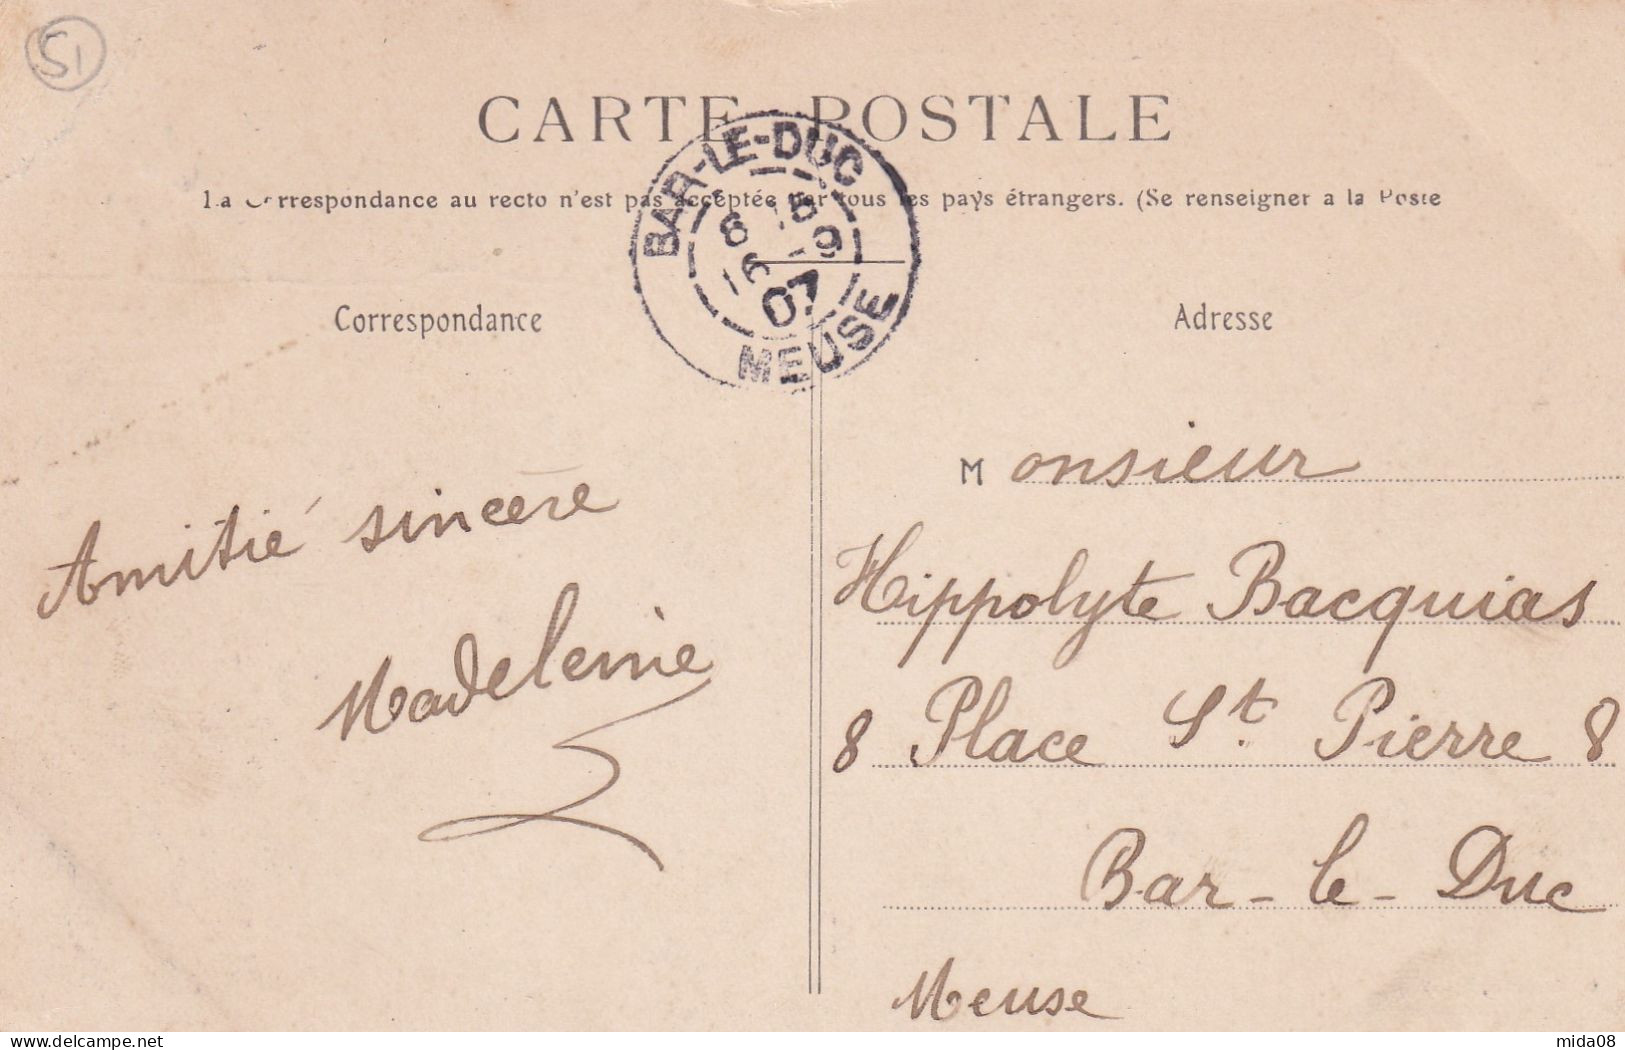 51
CARTE POSTALE
La Correspondance au recto n'est pas acceptée par tous les pays étrangers. (Se renseigner a la Poste
BAR-LE-DUC
07
MEUSE
Correspondance
Adresse
Amitié sincère
Madeleine
Monsieur
Hippolyte Bacquias
8 Place St. Pierre 8
Bar-le-Duc
Meuse
mida08